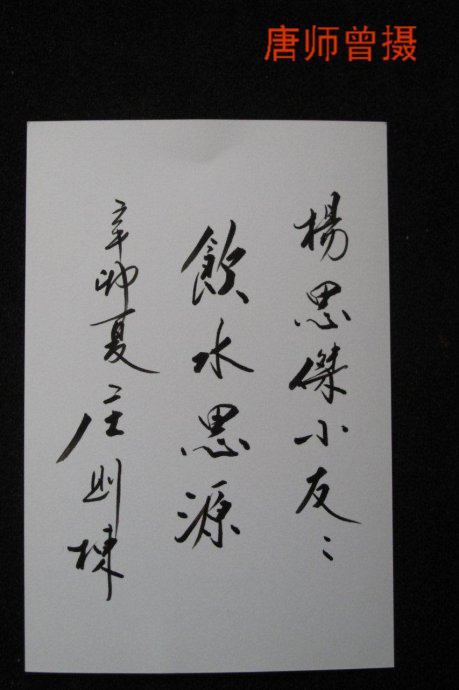 唐师曾摄
楊思傑小友:
飲水思源
辛卯夏 庄则棟